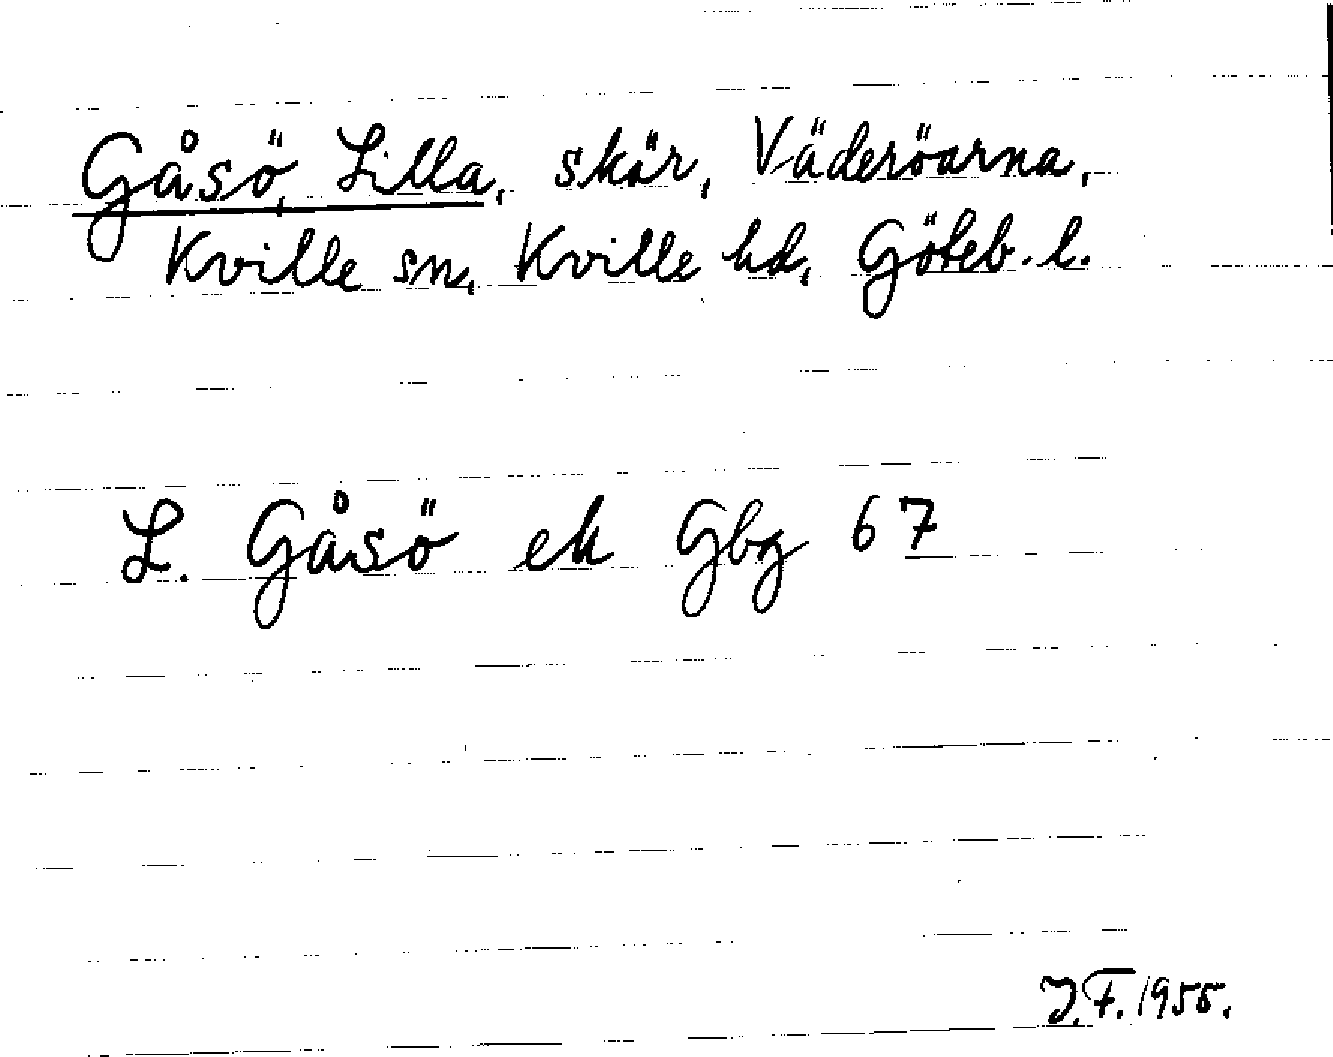 Gåsö, Lilla, skär, Väderöarna,
Kville sn, Kville hd, Göteb. l.
L. Gåsö ek Gbg 67
J.F. 1955.